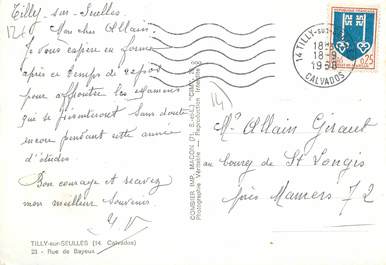 Tilly-sur-Seulles
Mon cher Allain.
Je vous espère en forme
après ce temps de repos
pour affronter les examens
qui se présenteront sans doute
encore pendant cette année
d'études.
Bon courage et recevez
mon meilleur souvenir.
TILLY-sur-SEULLES (14. Calvados)
23 - Rue de Bayeux
COMBIER IMP. MACON
Photographie Véritable — Reproduction Interdite
14
14 TILLY-sur-
18-9
CALVADOS
0,25
Mr Allain Giraud
au bourg de St Longis
près Mamers 72